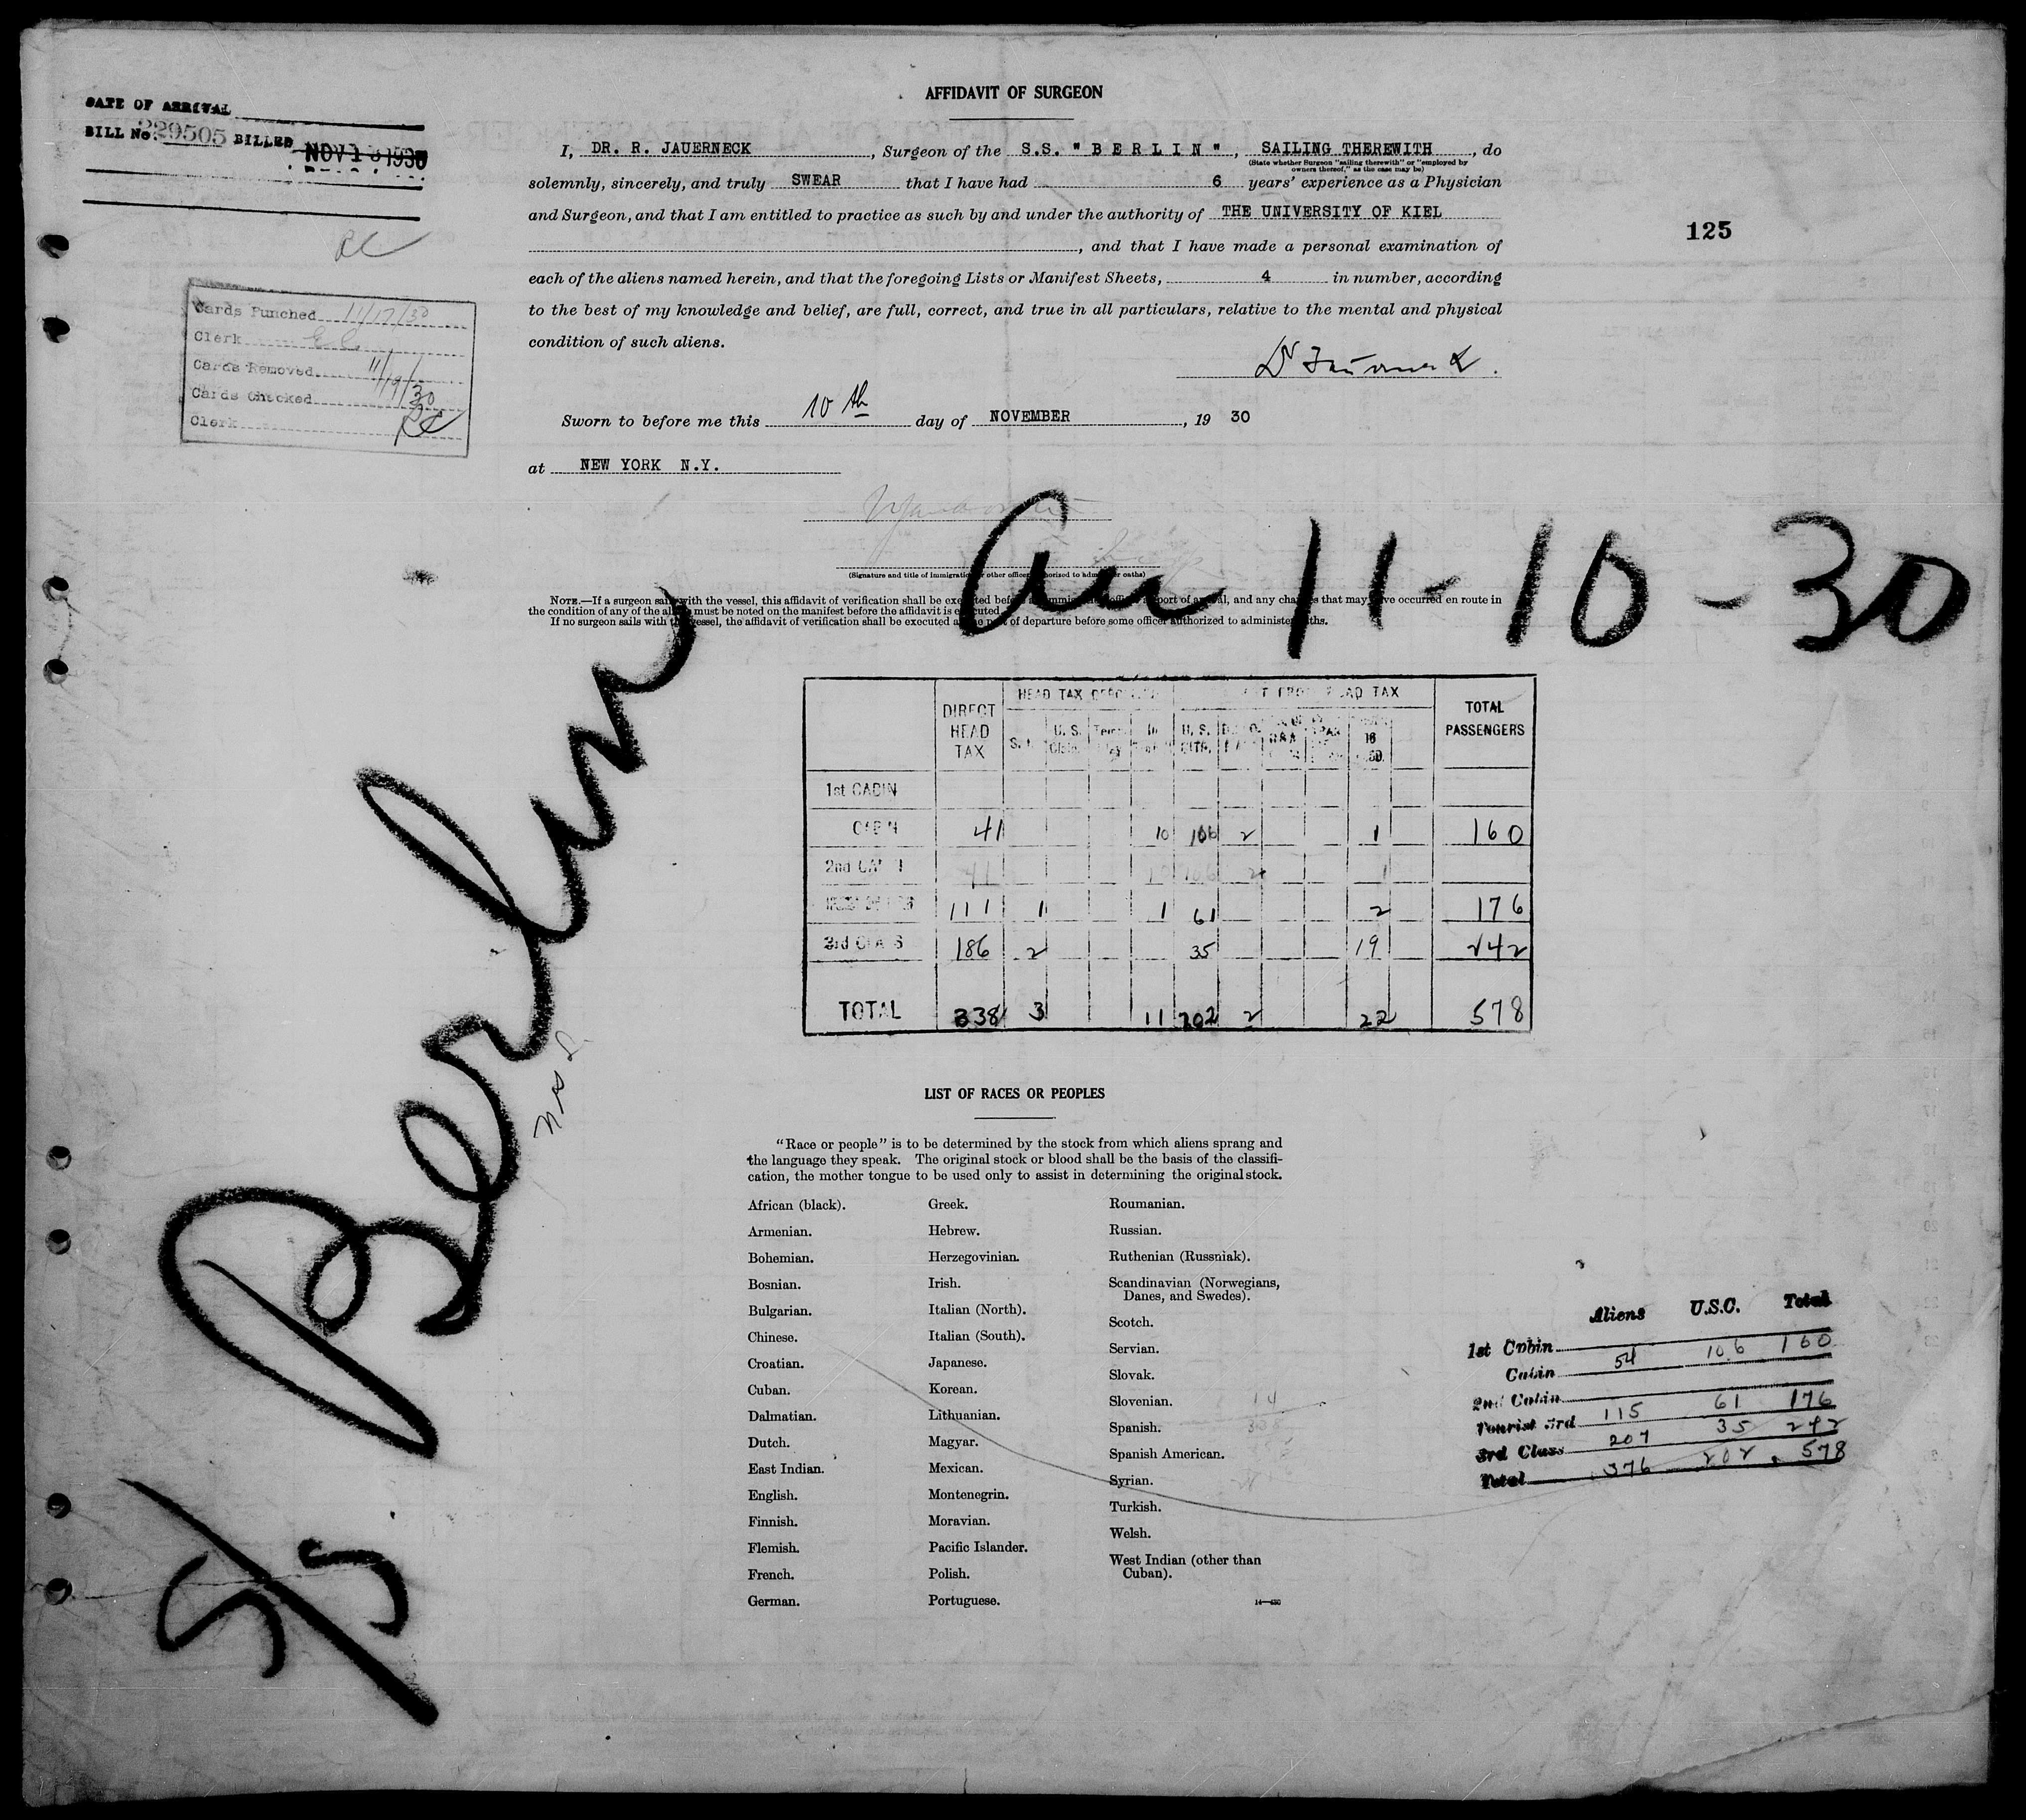 AFFIDAVIT OF SURGEON
DATE OF ARRIVAL
BILL No. 229505 BILLED NOV 13 1930
I, DR. R. JAUERNECK, Surgeon of the S.S. "BERLIN", SAILING THEREWITH, do
(State whether Surgeon "sailing therewith" or "employed by
owners thereof," as the case may be)
solemnly, sincerely, and truly SWEAR that I have had 6 years' experience as a Physician
and Surgeon, and that I am entitled to practice as such by and under the authority of THE UNIVERSITY OF KIEL
, and that I have made a personal examination of
each of the aliens named herein, and that the foregoing Lists or Manifest Sheets, 4 in number, according
to the best of my knowledge and belief, are full, correct, and true in all particulars, relative to the mental and physical
condition of such aliens.
125
Cards Punched 11/17/30
Clerk
Cards Removed
Cards Checked 11/19/30
Clerk
Sworn to before me this 10th day of NOVEMBER, 19 30
at NEW YORK N.Y.
(Signature and title of immigration or other officer authorized to administer oaths)
Arr 11-10-30
NOTE.—If a surgeon sails with the vessel, this affidavit of verification shall be executed before an immigration officer at port of arrival, and any changes that may have occurred en route in
the condition of any of the aliens must be noted on the manifest before the affidavit is executed.
If no surgeon sails with the vessel, the affidavit of verification shall be executed at the port of departure before some officer authorized to administer oaths.
S/S Berlin
DIRECT HEAD TAX
HEAD TAX
HEAD TAX
TOTAL PASSENGERS
U. S.
U. S. CITS.
16
1st CABIN
CABIN 41 10 106 2 1 160
2nd CABIN 41 10 106 2 1
111 1 1 61 2 176
3rd CLASS 186 2 35 19 242
TOTAL 338 3 11 202 2 22 578
LIST OF RACES OR PEOPLES
"Race or people" is to be determined by the stock from which aliens sprang and
the language they speak. The original stock or blood shall be the basis of the classifi-
cation, the mother tongue to be used only to assist in determining the original stock.
African (black).
Armenian.
Bohemian.
Bosnian.
Bulgarian.
Chinese.
Croatian.
Cuban.
Dalmatian.
Dutch.
East Indian.
English.
Finnish.
Flemish.
French.
German.
Greek.
Hebrew.
Herzegovinian.
Irish.
Italian (North).
Italian (South).
Japanese.
Korean.
Lithuanian.
Magyar.
Mexican.
Montenegrin.
Moravian.
Pacific Islander.
Polish.
Portuguese.
Roumanian.
Russian.
Ruthenian (Russniak).
Scandinavian (Norwegians,
Danes, and Swedes).
Scotch.
Servian.
Slovak.
Slovenian.
Spanish.
Spanish American.
Syrian.
Turkish.
Welsh.
West Indian (other than
Cuban).
Aliens U.S.C. Total
1st Cabin
Cabin 54 106 160
2nd Cabin
Tourist 3rd 115 61 176
3rd Class 207 35 242
Total 376 202 578